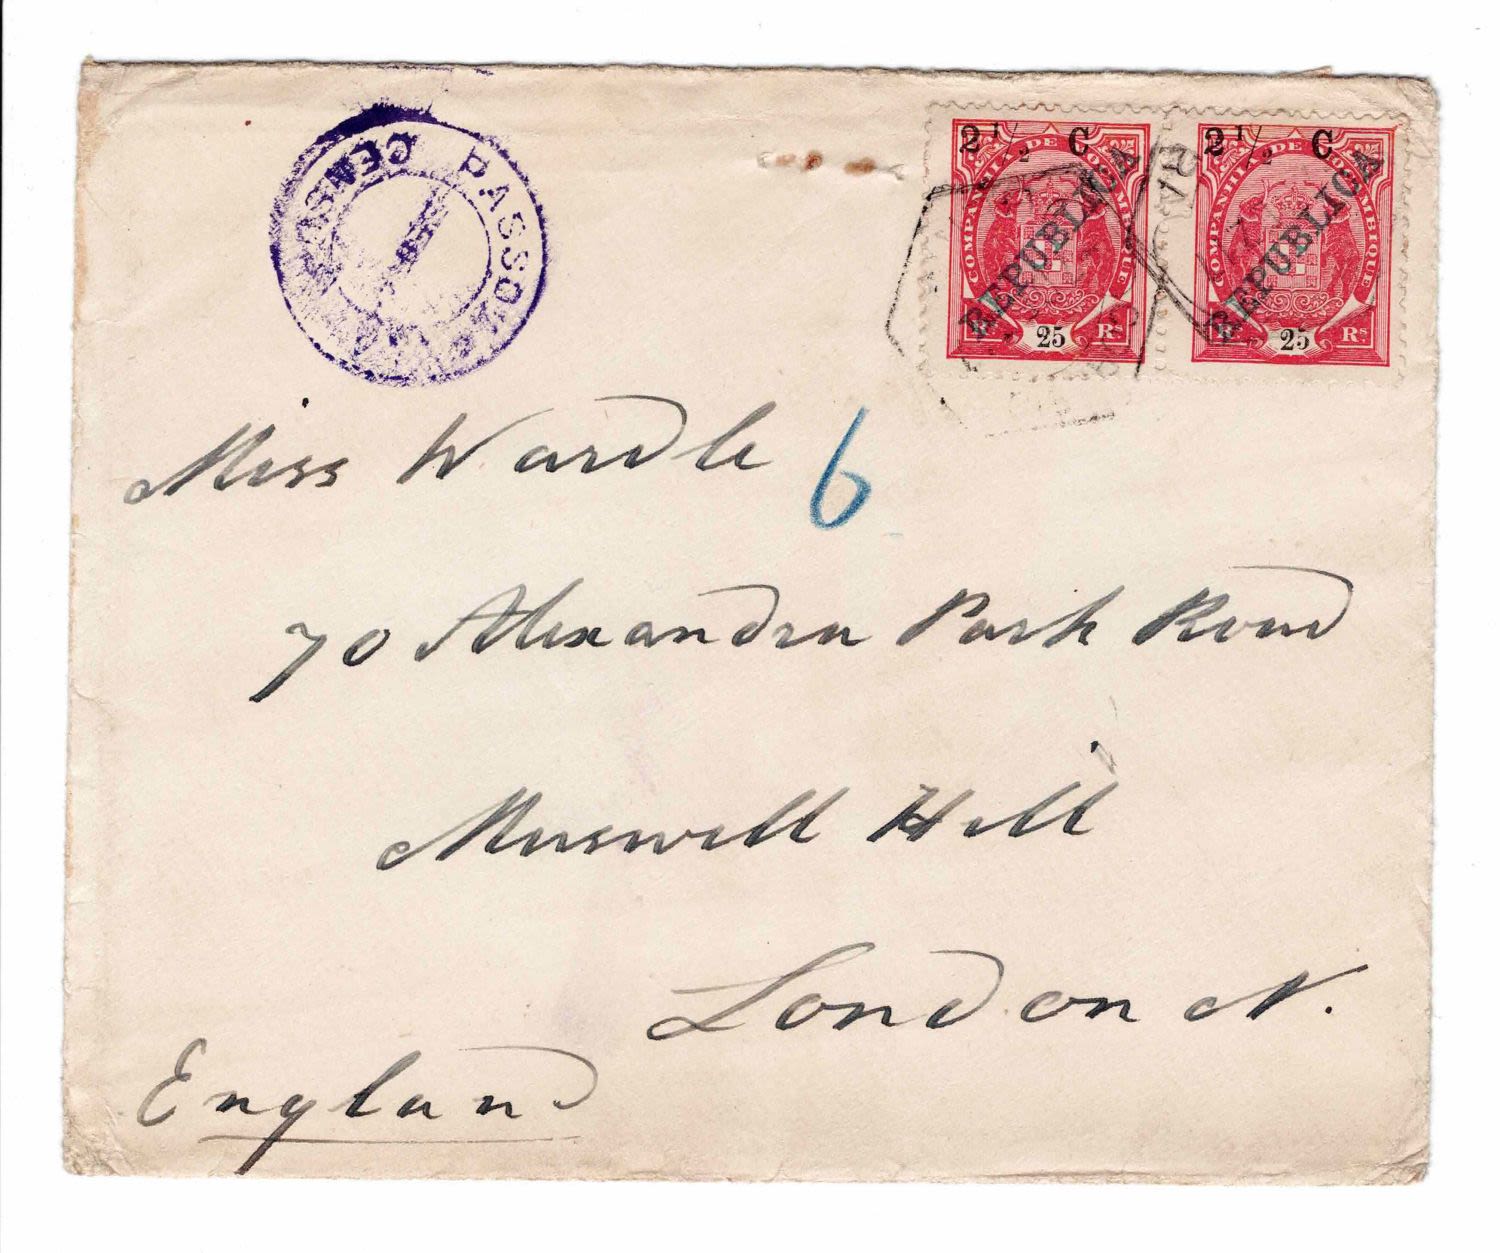 PASSED
CENSOR
2 1/2 C
COMPANHIA DE MOÇAMBIQUE
REPUBLICA
25 Rs
2 1/2 C
COMPANHIA DE MOÇAMBIQUE
REPUBLICA
25 Rs
Miss Wardle
6
70 Alexandra Park Road
Muswell Hill
London N.
England